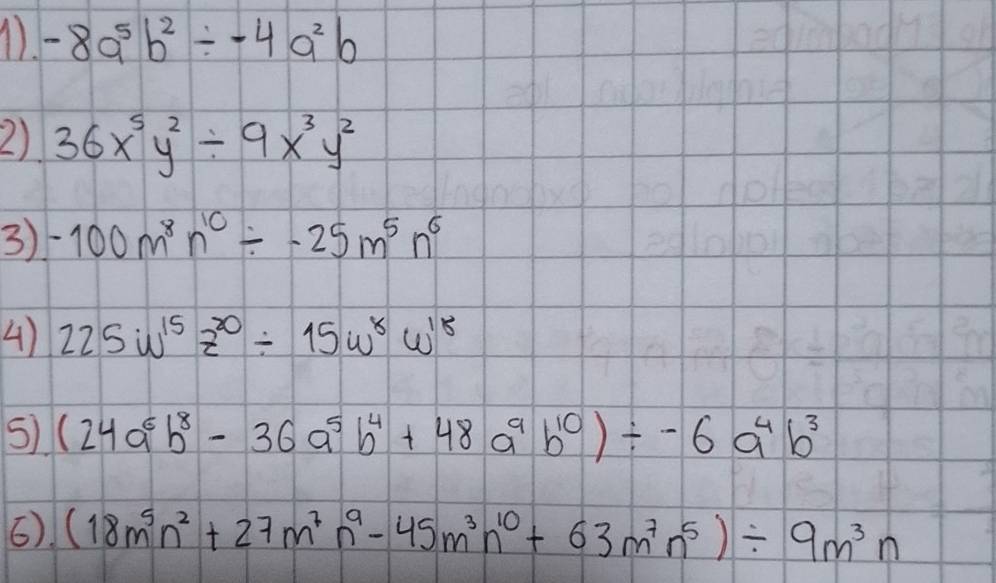 1). -8a⁵b² ÷ -4a²b
2). 36x⁵y² ÷ 9x³y²
3). -100m⁸n¹⁰ ÷ -25m⁵n⁶
4) 225w¹⁵z²⁰ ÷ 15w⁸w¹⁸
5). (24a⁵b⁸ - 36a⁵b⁴ + 48a⁹b¹⁰) ÷ -6a⁴b³
6). (18m⁵n² + 27m⁷n⁹ - 45m³n¹⁰ + 63m⁷n⁵) ÷ 9m³n